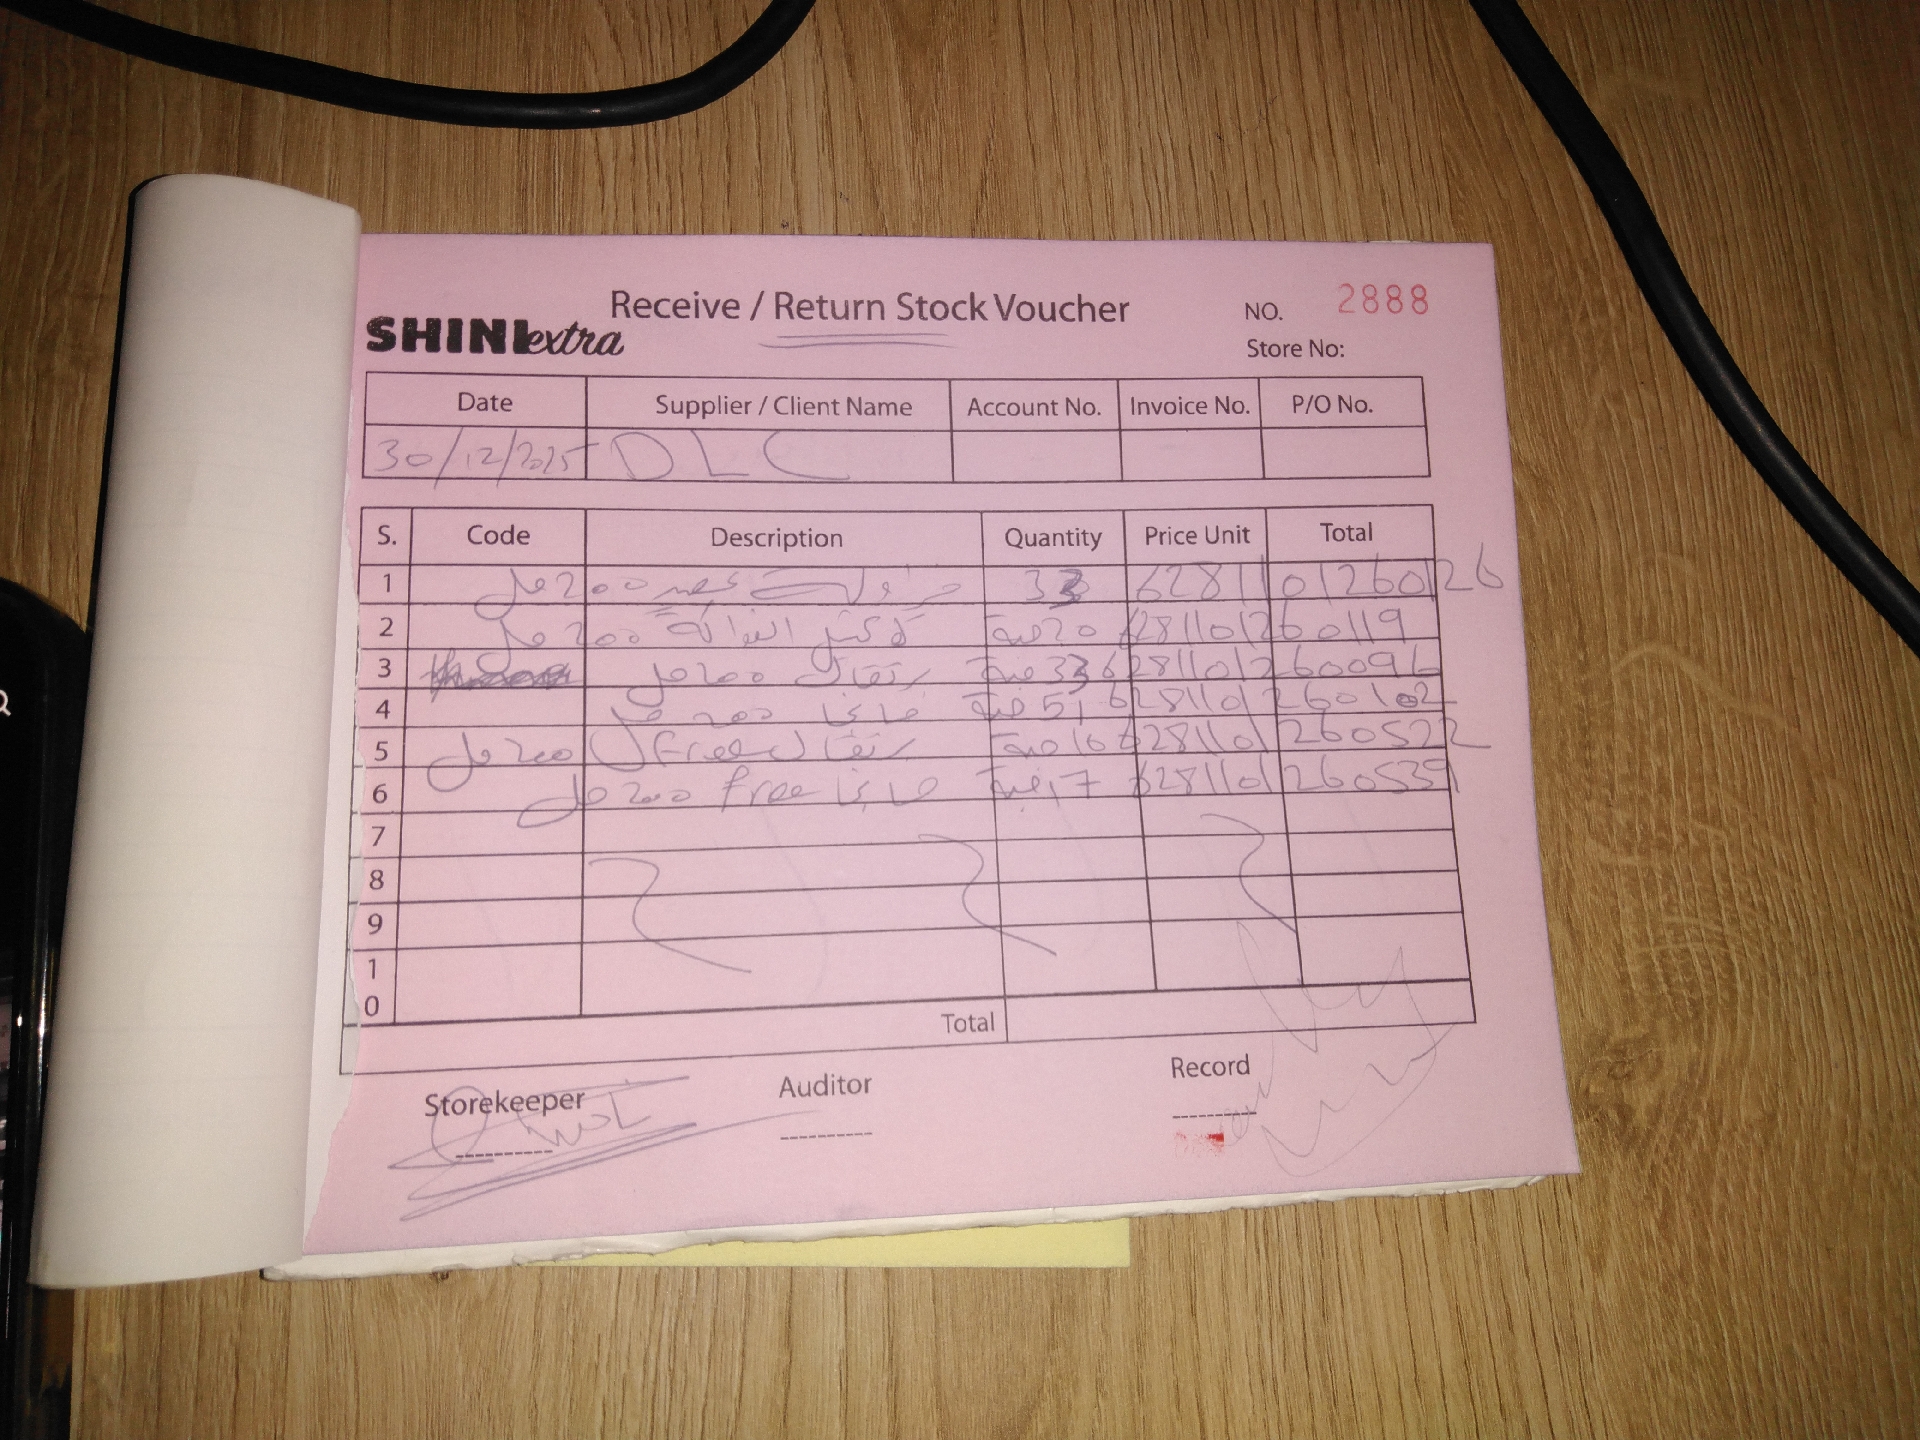 Receive / Return Stock Voucher
SHINE extra
NO. 2888
Store No:
Date Supplier / Client Name Account No. Invoice No. P/O No.
30/12/2025 DLC
S. Code Description Quantity Price Unit Total
1 200 مل 33 6281101260126
2 كوكتيل الفواكه 200 مل 20 حبة 6281101260119
3 برتقال 200 مل 33 حبة 6281101260096
4 مانجا 200 مل 51 حبة 6281101260102
5 برتقال Free 200 مل 16 حبة 6281101260522
6 مانجا free 200 مل 17 حبة 6281101260539
7
8
9
10
Total
Storekeeper Auditor Record